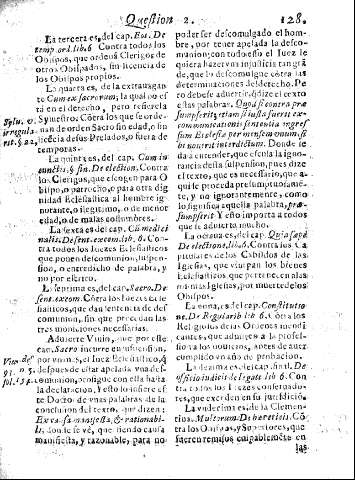 Question 2.
128.
La tercera es, del cap. Eos. De
temp. ord. lib. 6 Contra todos los
Obispos, que ordenã Clerigos de
otros Obispados, sin licencia de
los Obispos propios.
La quarta es, de la extrauagan
te Cum ex sacrorum; la qual no es
tà en el derecho, pero refierela
Syluestro: Côtra los que se orde-
nan de orden Sacro sin edad, ò sin
licencia de sus Prelados, o fuera de
temporas.
Sylu. v.
irregula
La quinta es, del cap. Cum in
cunctis, § fin. De election. Contra
los Clerigos, que eligen para O-
bispo, o parrocho, o para otra dig
nidad Eclesiastica al hombre ig-
norante, o ilegitimo, o de menor
edad, o de malas costumbres.
La sexta es del cap. Cum medici
nalis. De sent. excom. lib. 6. Con-
tra todos los Iuezes Eclesiasticos
que ponen descomunion, suspen-
sion, o entredicho de palabra, y
no por escrito.
La septima es, del cap. Sacro. De
sent. excom. Côtra los Iuezes Ecle
siasticos, que dan sentencias de des
comunion, sin que precedan las
tres moniciones necessarias.
Aduierte Viuin, que por este
cap. Sacro incurre en suspension,
por vn mes, el Iuez Eclesiastico, q̃
despues de estar apelada vna des-
comunion, prosigue con ella hasta
la declaracion, y esto lo infiere es
te Docto de vnas palabras de la
conclusion del texto, que dizen:
Ex causa manifesta, & rationabi-
li, donde se vè, que siendo causa
manifiesta, y razonable, para no
poder ser descomulgado el hom-
bre, por tener apelada la desco-
munion; con todo esso el Iuez le
quiera hazer vna injusticia tan grã
de, que la descomulgue côtra las
determinaciones del derecho. Pe
ro debese aduertir, q̃ dize el texto
estas palabras. Quod si contra præ
sumpserit, etiam si iusta fuerit ex-
communicationis sententia ingres
sum Ecclesiæ per mensem vnum si-
bi nouerit interdictum. Donde se
da a entender, que escusa la igno-
rancia desta suspension, pues dize
el texto, que es necessario, que a-
qui se proceda presumptuosamẽ-
te, y no ignorantemente, como
lo significa aquella palabra, præ-
sumpserit Y esto importa a todos
que se aduierta mucho.
La octaua es, del cap. Quia sæpe
De electione, lib. 6. Contra los Ca
pitulares de los Cabildos de las
Iglesias, que vsurpan los bienes
Eclesiasticos que pertenecen a las
mismas Iglesias, por muerte de los
Obispos.
La nona es, del cap. Constitutio
ne. De Regularib lib 6. Côtra los
Religiosos de las Ordenes mendi
cantes, que admiten a la profes-
sion a los nouicios, antes de auer
cumplido vn año de probacion.
La decima es, del cap. final. De
officio iudicis de legate lib 6. Con
tra todos los Iuezes conseruado-
res, que exceden en su jurisdicion.
La vndecima es, de la Clemen-
tina. Multorum De hæreticis. Côtra
los Obispos, y Superiores, que
fueren remisos culpablemẽte en
las